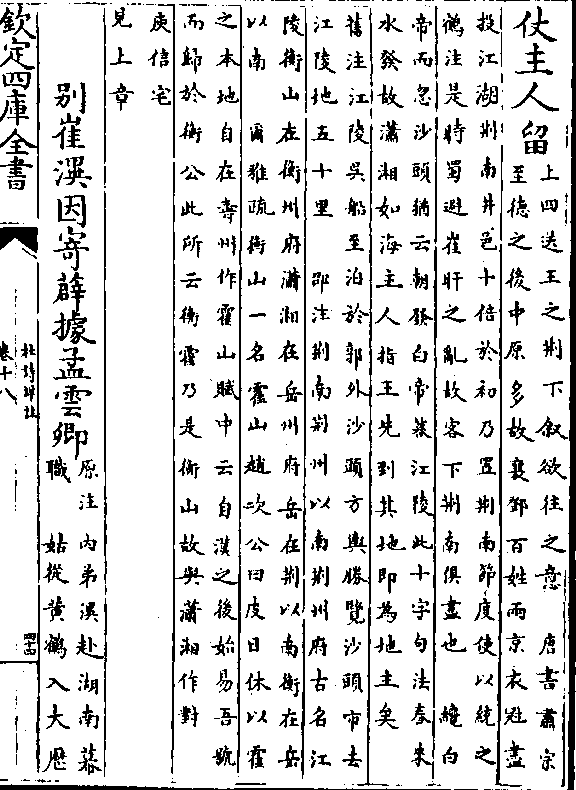 仗主人留
上四送王之荆下叙欲往之意　唐書肅宗
至德之後中原多故襄鄧百姓兩京衣冠盡
投江湖荆南井邑十倍於初乃置荆南節度使以統之
鶴注是時蜀避崔旰之亂故客下荆南俱盡也　纔白
帝而忽沙頭猶云朝發白帝暮江陵此十字句法春來
水發故瀟湘如海主人指王先到其地即為地主矣
舊注江陵吳船至泊於郭外沙頭方輿勝覽沙頭市去
江陵地五十里　邵注荆南荆州以南荆州府古名江
陵衡山在衡州府瀟湘在岳州府岳在荆以南衡在岳
以南　爾雅疏衡山一名霍山趙次公曰皮日休以霍
之本地自在壽州作霍山賦中云自漢之後始易吾號
而歸於衡公此所云衡霍乃是衡山故與瀟湘作對
庾信宅
見上章
别崔潩因寄薛據孟雲卿
原注　内弟潩赴湖南幕
職　姑從黄鶴入大厯
欽定四庫全書
杜詩詳註
卷十八